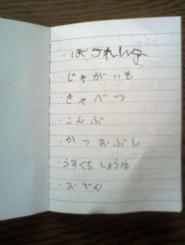 ・じゃがいも
・きゃべつ
・こんぶ
・かつおぶし
・うすくちしょうゆ
・おでん